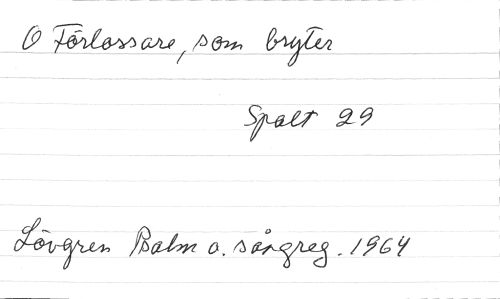 O Förlossare, som bryter
Spalt 29
Lövgren Psalm o. sångreg. 1964